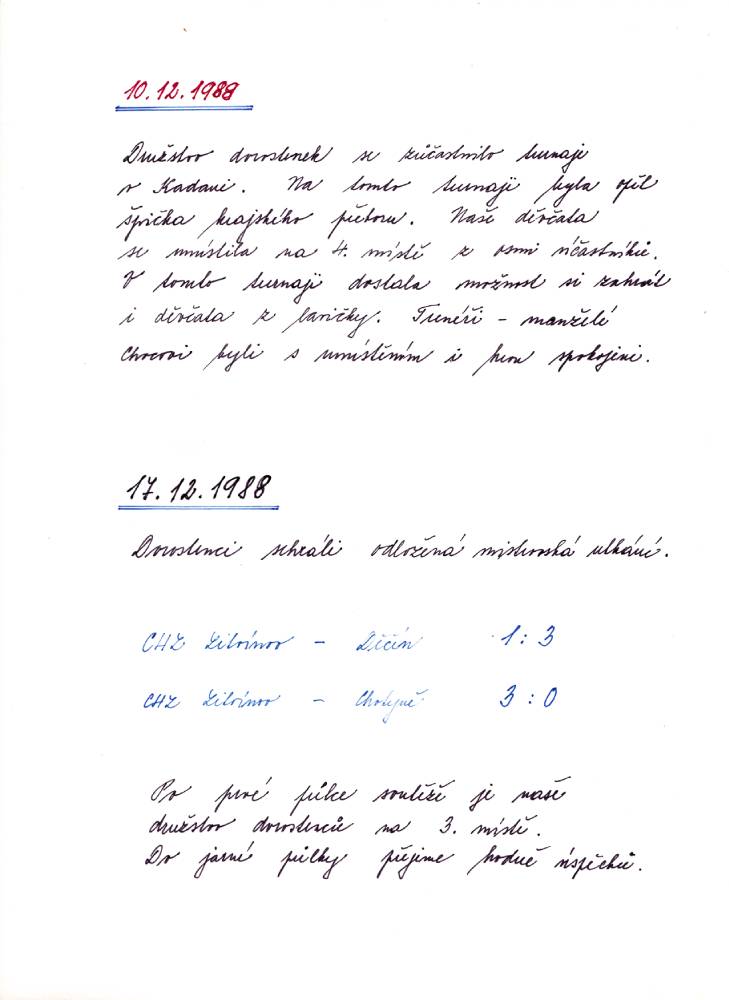 10.12.1988
Družstvo dorostenek se zúčastnilo turnaje
v Kadani. Na tomto turnaji byla opět
špička krajského přeboru. Naše děvčata
se umístila na 4. místě z osmi účastníků.
V tomto turnaji dostala možnost si zahrát
i děvčata z lavičky. Trenéři - manželé
Chocovi byli s umístěním i hrou spokojeni.
17.12.1988
Dorostenci sehráli odložená mistrovská utkání.
CHZ Litvínov - Děčín 1:3
CHZ Litvínov - Chotyně 3:0
Po prvé půlce soutěže je naše
družstvo dorostenců na 3. místě.
Do jarní půlky přejeme hodně úspěchů.